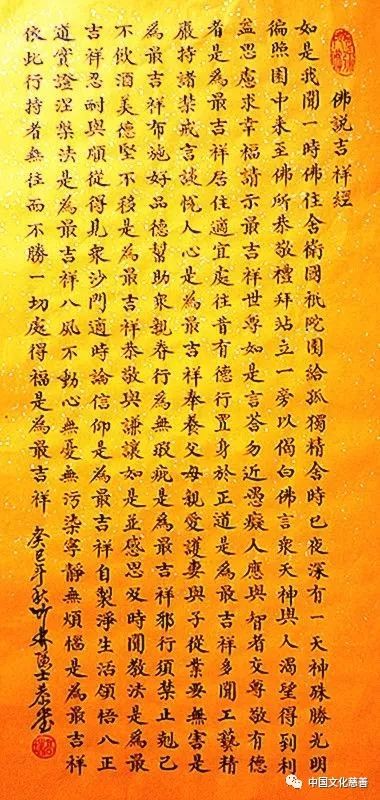 佛說吉祥經
如是我聞一時佛住舍衛國祇陀園給孤獨精舍時已夜深有一天神殊勝光明
徧照園中來至佛所恭敬禮拜站立一旁以偈白佛言眾天神與人渴望得到利
益思慮求幸福請示最吉祥世尊如是言答勿近愚癡人應與智者交尊敬有德
者是為最吉祥居住適宜處往昔有德行置身於正道是為最吉祥多聞工藝精
嚴持諸禁戒言談悅人心是為最吉祥奉養父母親愛護妻與子從業要無害是
為最吉祥布施好品德幫助眾親眷行為無瑕疵是為最吉祥邪行須禁止剋己
不飲酒美德堅不移是為最吉祥恭敬與謙讓如是並感恩及時聞教法是為最
吉祥忍耐與順從得見眾沙門適時論信仰是為最吉祥自製淨生活領悟八正
道實證涅槃法是為最吉祥八風不動心無憂無污染寧靜無煩惱是為最吉祥
依此行持者無往而不勝一切處得福是為最吉祥 癸巳年秋 士恭書
中国文化慈善